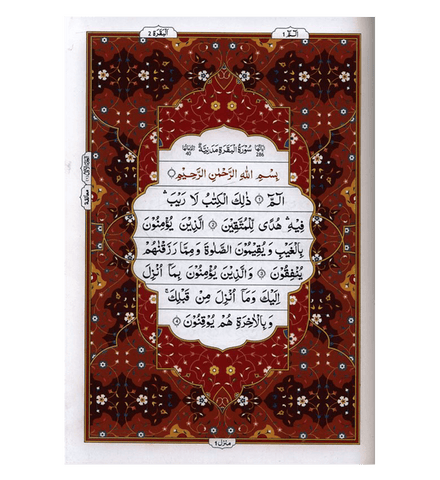 اَلٓمّٓ ١
اَلْبَقَرَة ٢
اٰيَاتُهَا ٢٨٦ سُوْرَةُ الْبَقَرَةِ مَدَنِيَّةٌ رُكُوْعَاتُهَا ٤٠
بِسْمِ اللّٰهِ الرَّحْمٰنِ الرَّحِيْمِ
الٓمّٓ ۚ ﴿١﴾ ذٰلِكَ الْكِتٰبُ لَا رَيْبَ ۛ
فِيْهِ ۛ هُدًى لِّلْمُتَّقِيْنَ ﴿٢﴾ الَّذِيْنَ يُؤْمِنُوْنَ
بِالْغَيْبِ وَيُقِيْمُوْنَ الصَّلٰوةَ وَمِمَّا رَزَقْنٰهُمْ
يُنْفِقُوْنَ ﴿٣﴾ وَالَّذِيْنَ يُؤْمِنُوْنَ بِمَآ اُنْزِلَ
اِلَيْكَ وَمَآ اُنْزِلَ مِنْ قَبْلِكَ ۚ
وَبِالْاٰخِرَةِ هُمْ يُوْقِنُوْنَ ﴿٤﴾
منزل ١